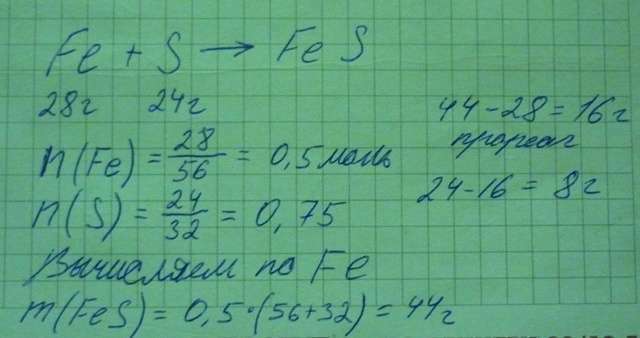 Fe + S → FeS
28г 24г
n(Fe) = 28/56 = 0,5 моль
n(S) = 24/32 = 0,75
Вычисляем по Fe
m(FeS) = 0,5·(56+32) = 44г
44-28=16г
прореаг
24-16 = 8г